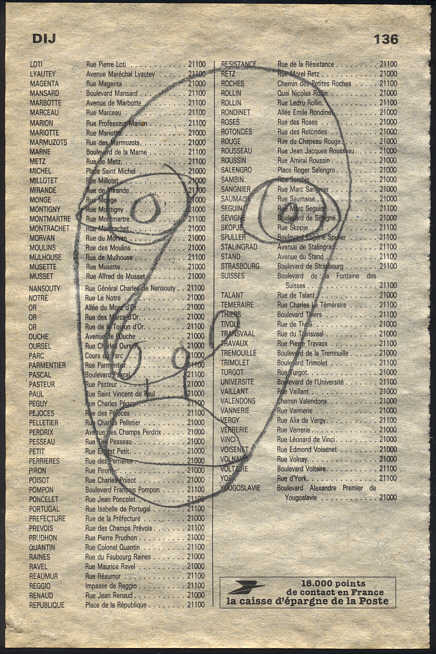 DIJ
136
LOTI Rue Pierre Loti 21100
LYAUTEY Avenue Maréchal Lyautey 21100
MAGENTA Rue Magenta 21000
MANSARD Boulevard Mansard 21100
MARBOTTE Avenue de Marbotte 21000
MARCEAU Rue Marceau 21000
MARION Rue Professeur Marion 21100
MARIOTTE Rue Mariotte 21000
MARMUZOTS Rue des Marmuzots 21000
MARNE Boulevard de la Marne 21100
METZ Rue de Metz 21000
MICHEL Rue de Saint Michel 21000
MILLOTET Rue Millotet 21000
MIRANDE Rue de Mirande 21000
MONGE Rue Monge 21000
MONTIGNY Rue Montigny 21000
MONTMARTRE Rue Montmartre 21000
MONTRACHET Rue Montrachet 21000
MORVAN Rue du Morvan 21000
MOULINS Rue des Moulins 21000
MULHOUSE Rue de Mulhouse 21000
MUSETTE Rue Musette 21000
MUSSET Rue Alfred de Musset 21000
NANSOUTY Rue Général Charles de Nansouty 21000
NOTRE Rue Le Nôtre 21000
OR Allée du Mont d'Or
OR
OR
OUCHE Avenue de l'Ouche 21000
OURSEL Rue
PARC Cours du Parc 21000
PARMENTIER Rue Parmentier 21000
PASCAL Boulevard 21000
PASTEUR Rue Pasteur 21000
PAUL Rue Saint Vincent de Paul 21000
PEGUY Rue Charles Péguy 21000
PEJOCES Rue des Péjoces 21000
PELLETIER Rue Charles Pelletier 21000
PERDRIX Avenue des Champs Perdrix 21000
PESSEAU Rue Pesseau 21000
PETIT Rue Ernest Petit 21000
PERRIERES Rue des Perrières 21000
PIRON Rue Piron 21000
POISOT Rue Charles Poisot 21000
POMPON Boulevard François Pompon 21000
PONCELET Rue Jean Poncelet 21000
PORTUGAL Rue Isabelle de Portugal 21000
PREFECTURE Rue de la Préfecture 21000
PREVOIS Rue des Champs Prévois 21100
PRUDHON Rue Pierre Prudhon 21000
QUANTIN Rue Colonel Quantin 21000
RAINES Rue du Faubourg Raines 21000
RAVEL Rue Maurice Ravel 21000
REAUMUR Rue Réaumur 21100
REGGIO Impasse de Reggio 21100
RENAUD Rue Jean Renaud 21000
REPUBLIQUE Place de la République 21000
RESISTANCE Rue de la Résistance 21100
RETZ Rue Morel Retz 21000
ROCHES Chemin des Petites Roches 21100
ROLLIN Quai Nicolas Rolin 21000
ROLLIN Rue Ledru Rollin 21000
RONDINET Allée Emile Rondinet 21000
ROSES Rue des Roses 21000
ROTONDES Rue des Rotondes 21000
ROUGE Rue du Chapeau Rouge 21000
ROUSSEAU Rue Jean Jacques Rousseau 21000
ROUSSIN Rue Amiral Roussin 21000
SALENGRO Place Roger Salengro 21000
SAMBIN Rue Sambin 21000
SANGNIER Rue Marc Sangnier 21000
SAUMAISE Rue Saumaise 21000
SEGUIN Rue Marc Seguin 21000
SEVIGNE Rue de Sévigné 21000
SKOPJE Rue Skopje 21000
SPULLER Boulevard Eugène Spuller 21000
STALINGRAD Avenue de Stalingrad 21000
STAND Avenue du Stand 21000
STRASBOURG Boulevard de Strasbourg 21000
SUISSES Boulevard de la Fontaine des
Suisses 21100
TALANT Rue de Talant 21000
TEMERAIRE Rue Charles Le Téméraire 21000
THIERS Boulevard Thiers 21000
TIVOLI Rue de Tivoli 21000
TRANSVAAL Rue du Transvaal 21000
TRAVAUX Rue Pierre Travaux 21000
TREMOUILLE Boulevard de la Tremouille 21000
TRIMOLET Boulevard Trimolet 21000
TURGOT Rue Turgot 21000
UNIVERSITE Boulevard de l'Université 21000
VAILLANT Rue Vaillant 21000
VALENDONS Chemin Valendons 21000
VANNERIE Rue Vannerie 21000
VERGY Rue Alix de Vergy 21000
VERRERIE Rue Verrerie 21000
VINCI Rue Léonard de Vinci 21000
VOISENET Rue Edmond Voisenet 21000
VOLNAY Rue Volnay 21000
VOLTAIRE Boulevard Voltaire 21000
YORK Rue d'York 21000
YOUGOSLAVIE Boulevard Alexandre Premier de
Yougoslavie 21000
18.000 points
de contact en France
la caisse d'épargne de la Poste